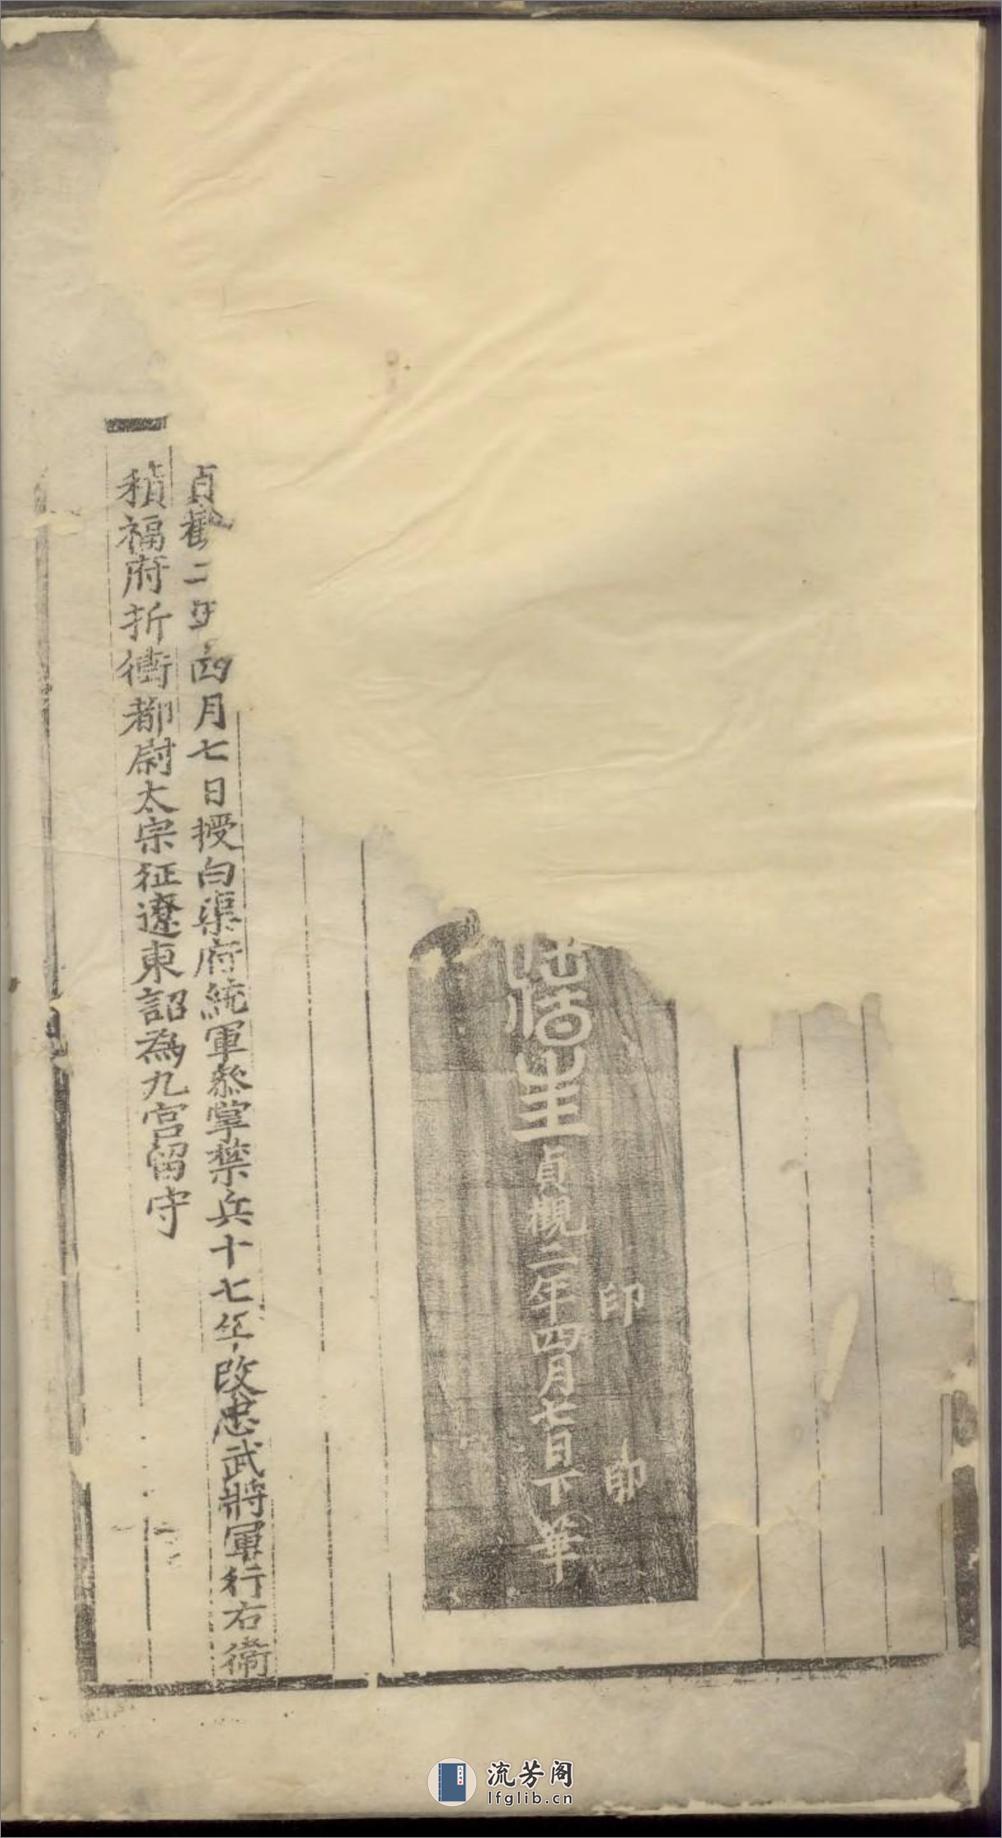 生
貞觀二年四月七日下
華
印
貞觀二年四月七日授白渠府統軍叅掌禁兵十七年改忠武將軍行右衛
積福府折衝都尉太宗征遼東詔為九宮留守
流芳阁
lfglib.cn